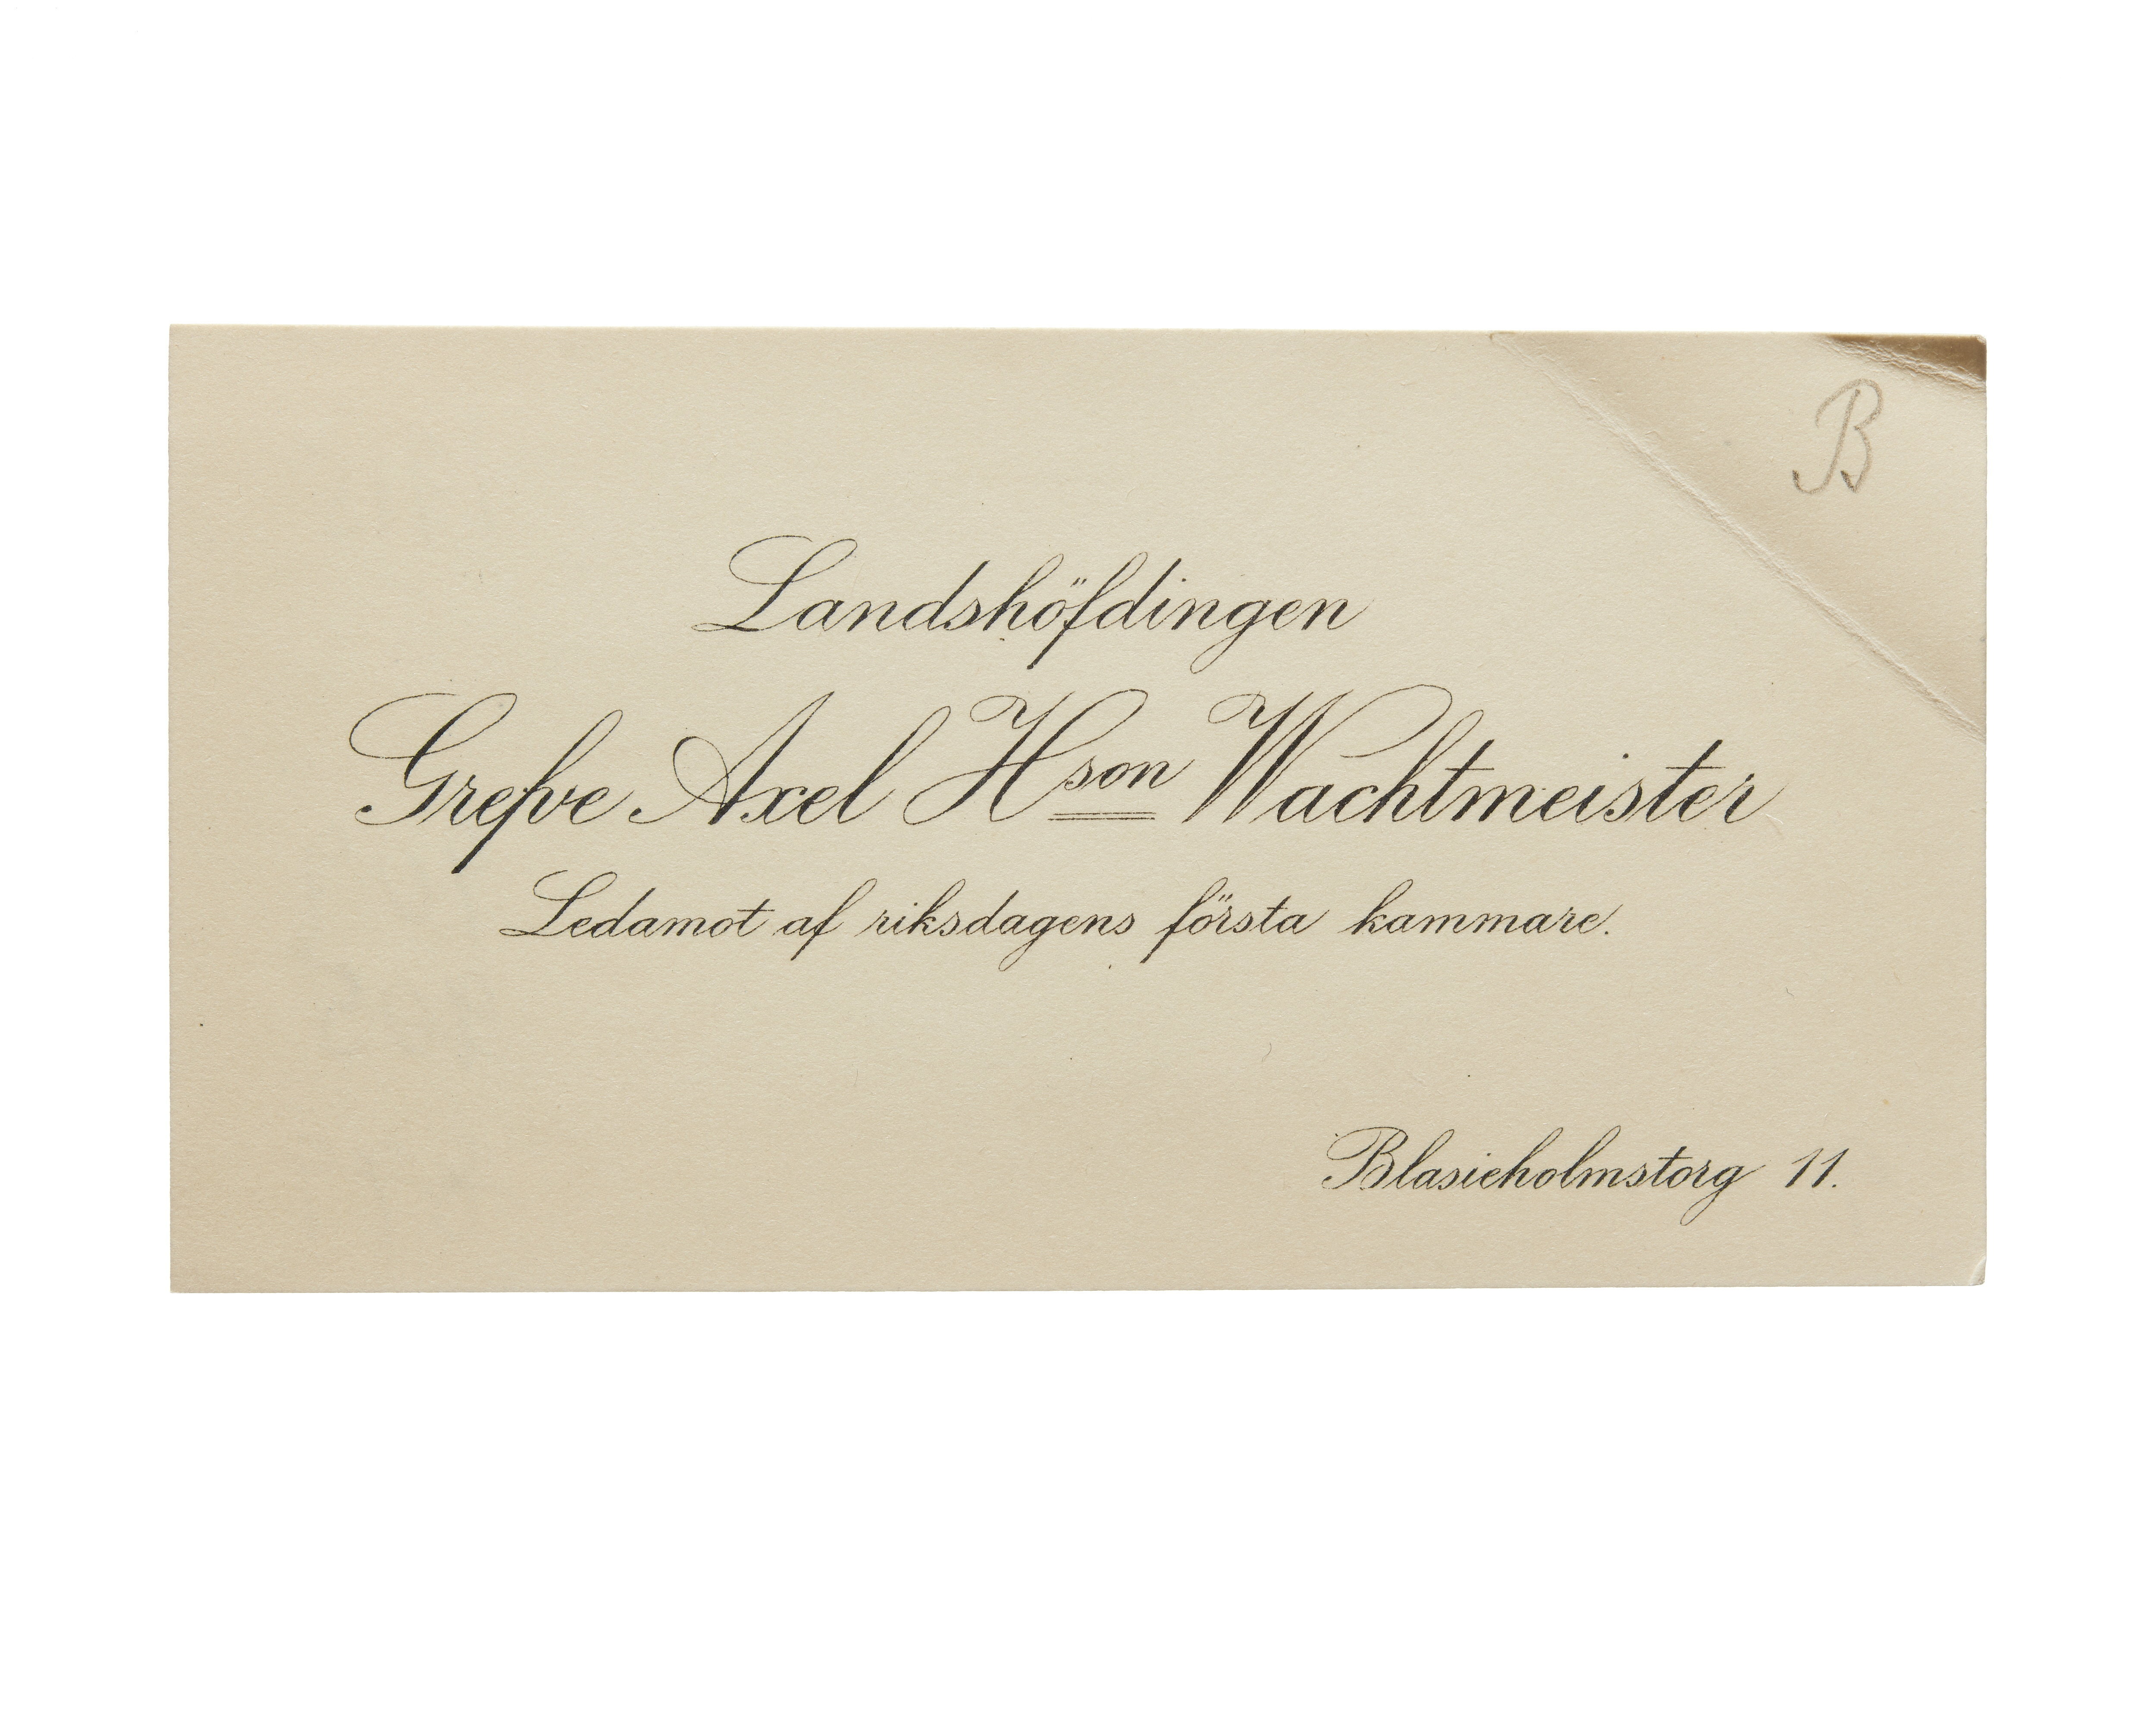 B
Landshöfdingen
Grefve Axel Hson Wachtmeister
Ledamot af riksdagens första kammare.
Blasieholmstorg 11.